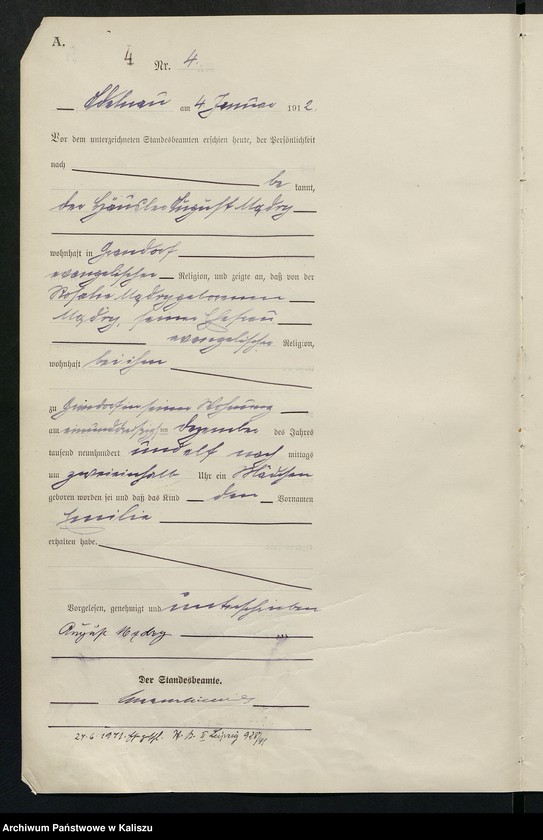 A.
4
Nr. 4.
Adelnau am 4 Januar 1912.
Vor dem unterzeichneten Standesbeamten erschien heute, der Persönlichkeit
nach be kannt,
der Häusler August Mądry
wohnhaft in Grandorf
evangelischer Religion, und zeigte an, daß von der
Rosalie Mądry geborenen
Mądry, seiner Ehefrau
evangelischer Religion,
wohnhaft bei ihm
zu Grandorf in seiner Wohnung
am einunddreißigsten Dezember des Jahres
tausend neunhundert und elf nach mittags
um zweieinhalb Uhr ein Mädchen
geboren worden sei und daß das Kind den Vornamen
Emilie
erhalten habe.
Vorgelesen, genehmigt und unterschrieben
August Mądry
Der Standesbeamte.
24.6.1941 Leipzig
Archiwum Państwowe w Kaliszu